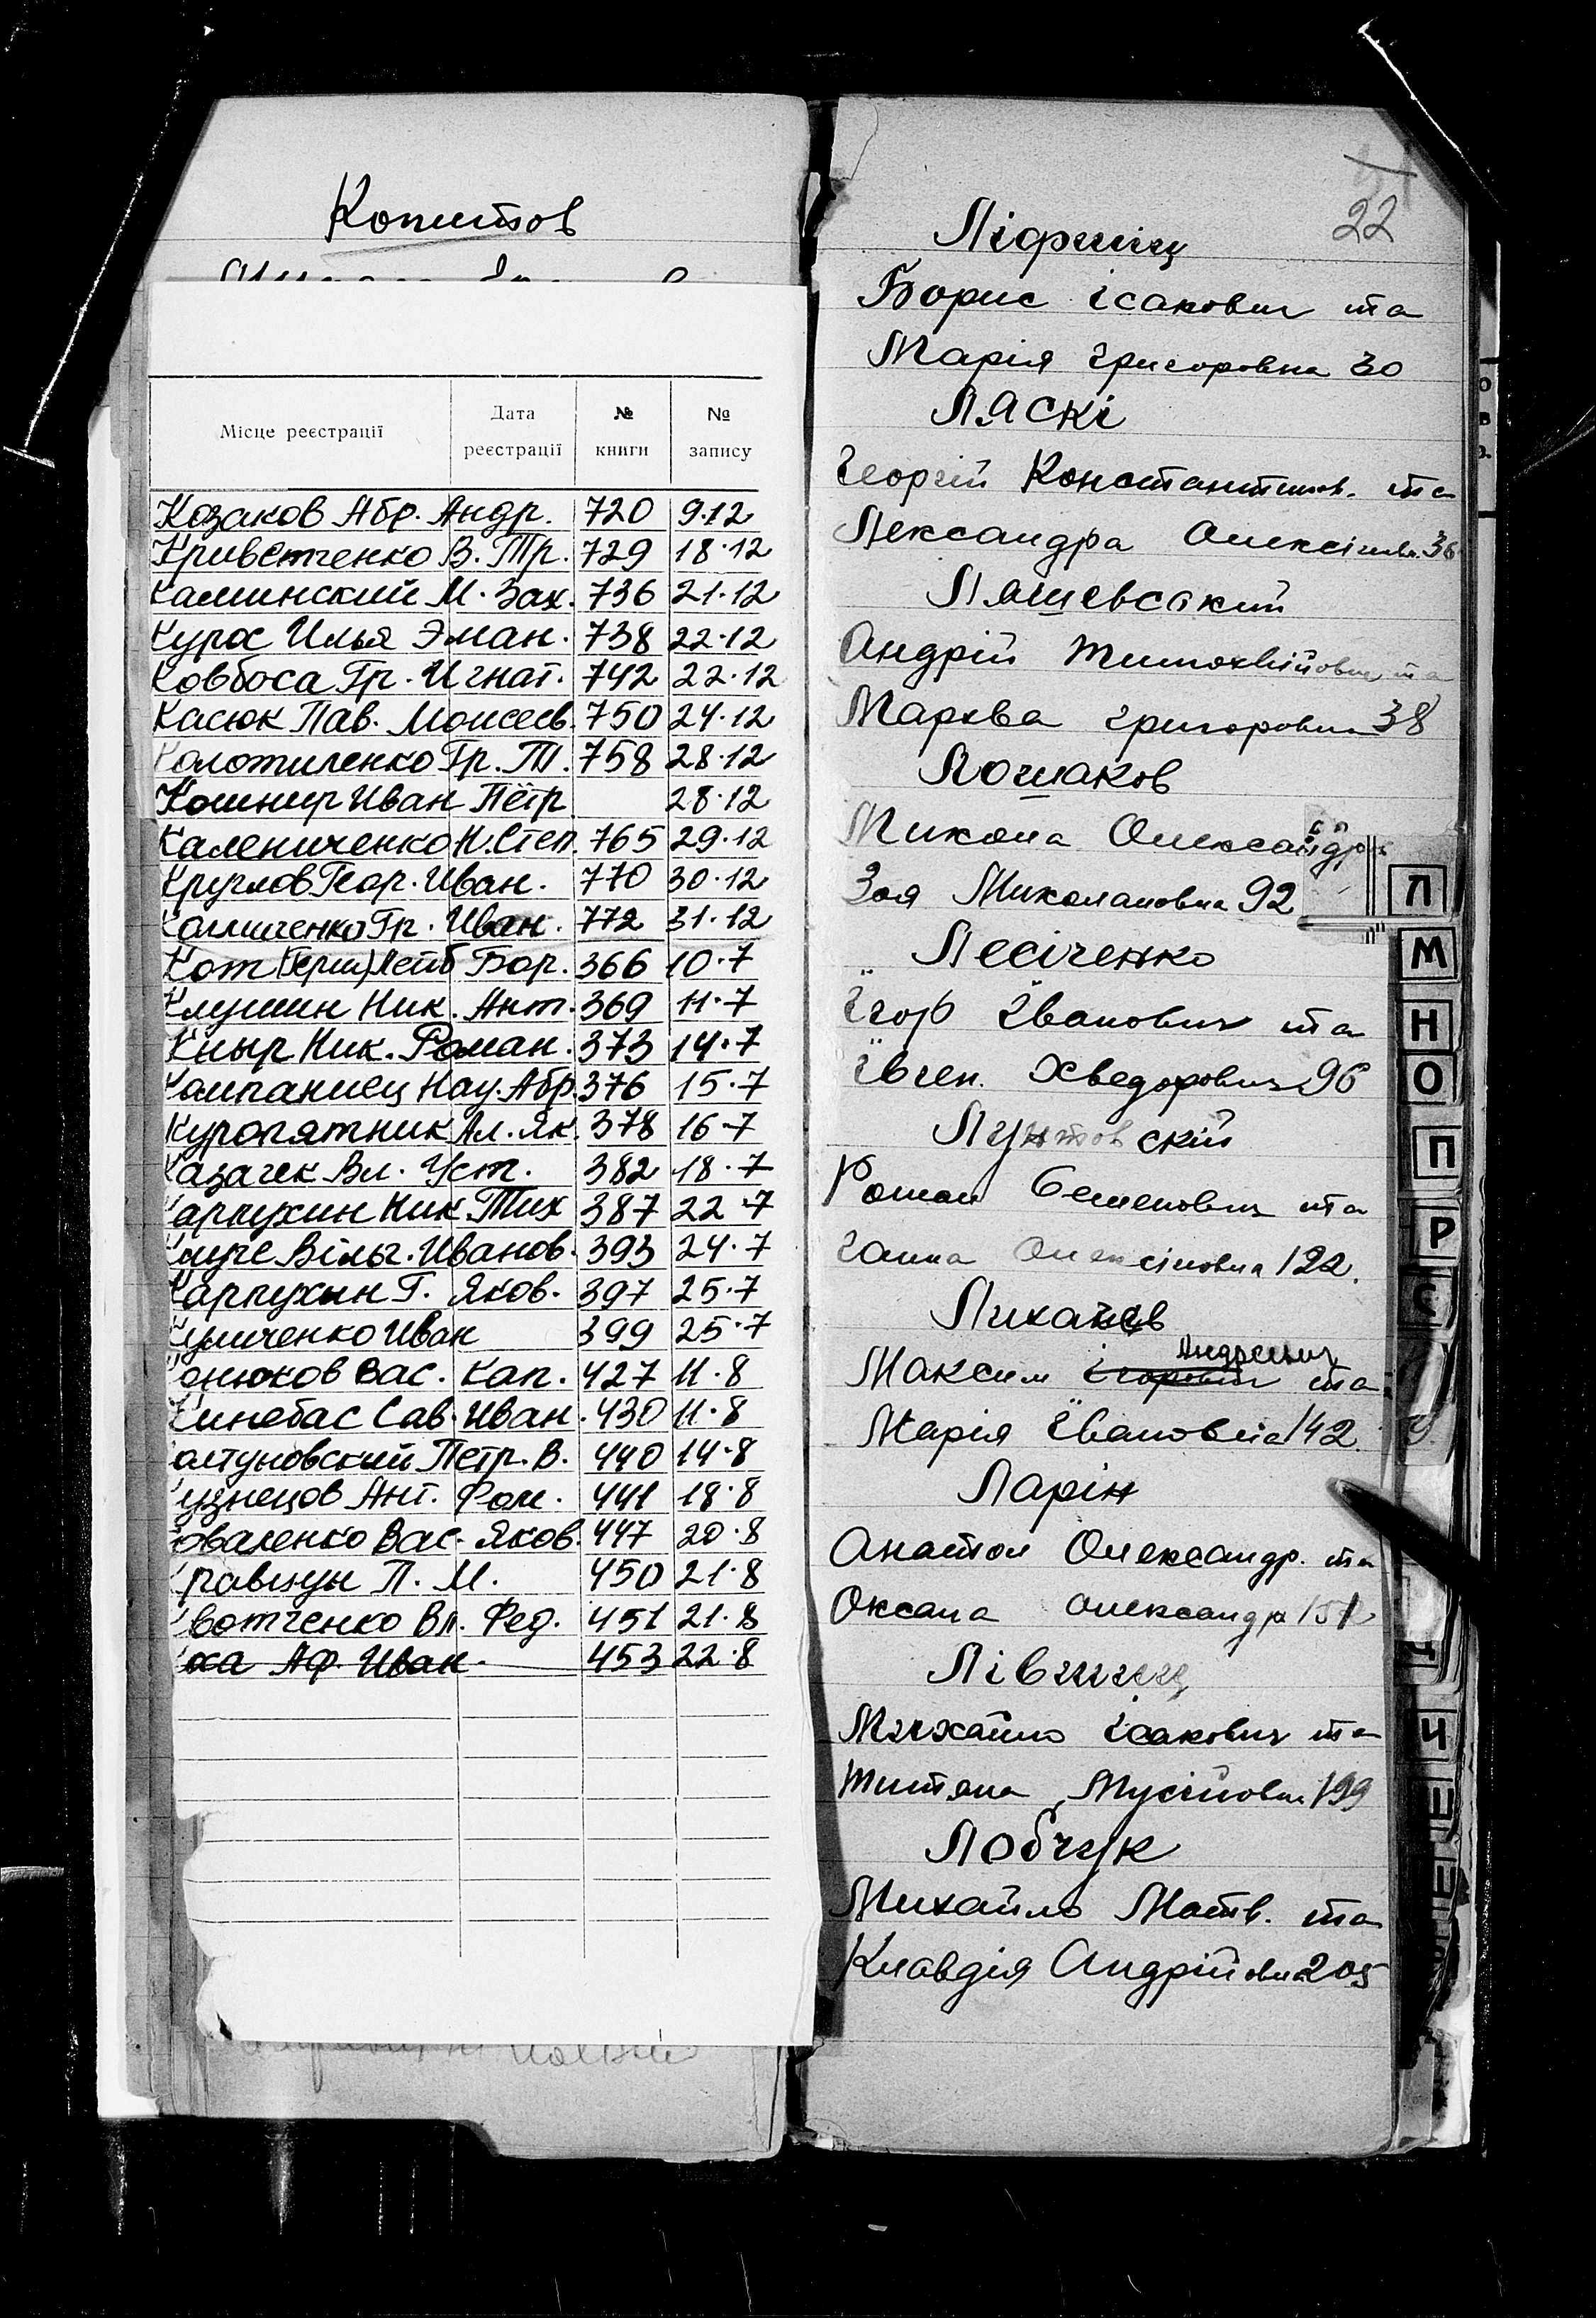 Копитов
Місце реєстрації
Дата реєстрації
№ книги
№ запису
Козаков Абр. Андр. 720 9.12
Криветченко В. Тр. 729 18.12
Каминский М. Зах. 736 21.12
Курос Илья Эман. 738 22.12
Ковбоса Гр. Игнат. 742 22.12
Касюк Пав. Моисеев. 750 24.12
Колотиленко Гр. Т. 758 28.12
Кошнир Иван Петр 28.12
Калениченко Н. Степ. 765 29.12
Круглов Геор. Иван. 770 30.12
Калиниченко Гр. Иван. 772 31.12
Кот (Герш) Лейб Бор. 366 10.7
Клушин Ник. Ант. 369 11.7
Кныр Ник. Роман. 373 14.7
Компаниец Нау. Абр. 376 15.7
Куропятник Ал. Як. 378 16.7
Казачек Вл. Уст. 382 18.7
Карпухин Ник. Тих 387 22.7
Клуге Вільг. Иванов. 393 24.7
Карпухин Г. Яков. 397 25.7
Кумченко Иван 399 25.7
Конюхов Вас. Кап. 427 11.8
Кинебас Сав. Иван. 430 11.8
Колтуновский Петр. В. 440 14.8
Кузнецов Ант. Фом. 441 18.8
Коваленко Вас. Яков. 447 20.8
Кравцун П. М. 450 21.8
Квотченко Вл. Фед. 451 21.8
Коха Аф. Иван. 453 22.8
22
Ліфшіц
Борис Ісакович та
Марія Григоровна 30
Ляскі
Георгій Константинов. та
Лександра Олексіївн. 36
Ляшевський
Андрій Тимохвійович та
Мархва Григоровна 38
Лошаков
Микола Олександр
Зоя Миколаповна 92
Лесіченко
Єгор Іванович та
Євген. Хведоровна 96
Лунтовскій
Роман Семенович та
Ганна Олексіповна 122.
Лихачев
Андреевич
Максим Ігорович та
Марія Івановна 142
Ларін
Анатол Олександр. та
Оксана Олександр 151
Лівшиц
Михайло Ісакович та
Титяна Мусіповна 199
Лобчук
Михайло Матв. та
Клавдія Андрійовна 205
Л
М
Н
О
П
Р
С
Ч